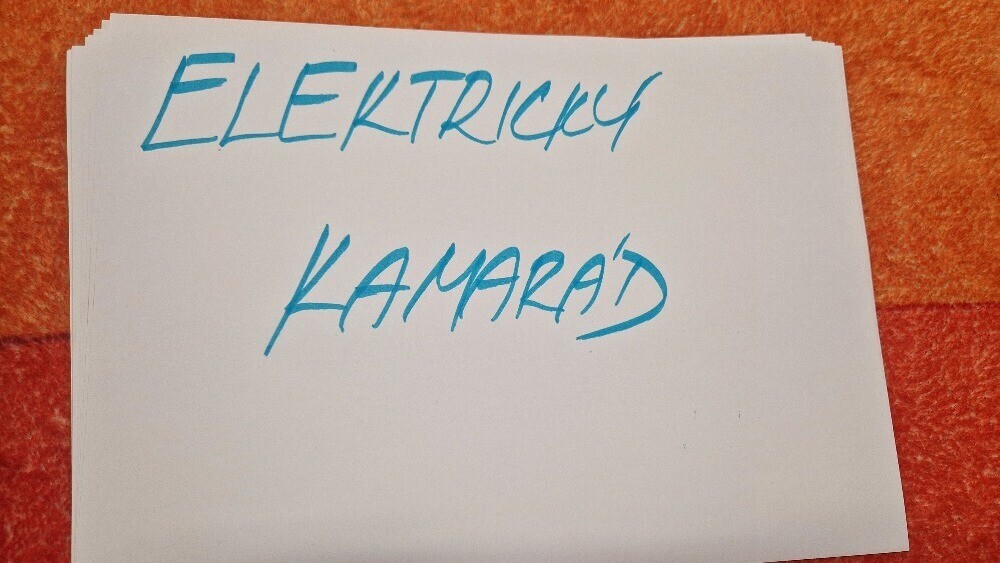 ELEKTRICKÝ
KAMARÁD